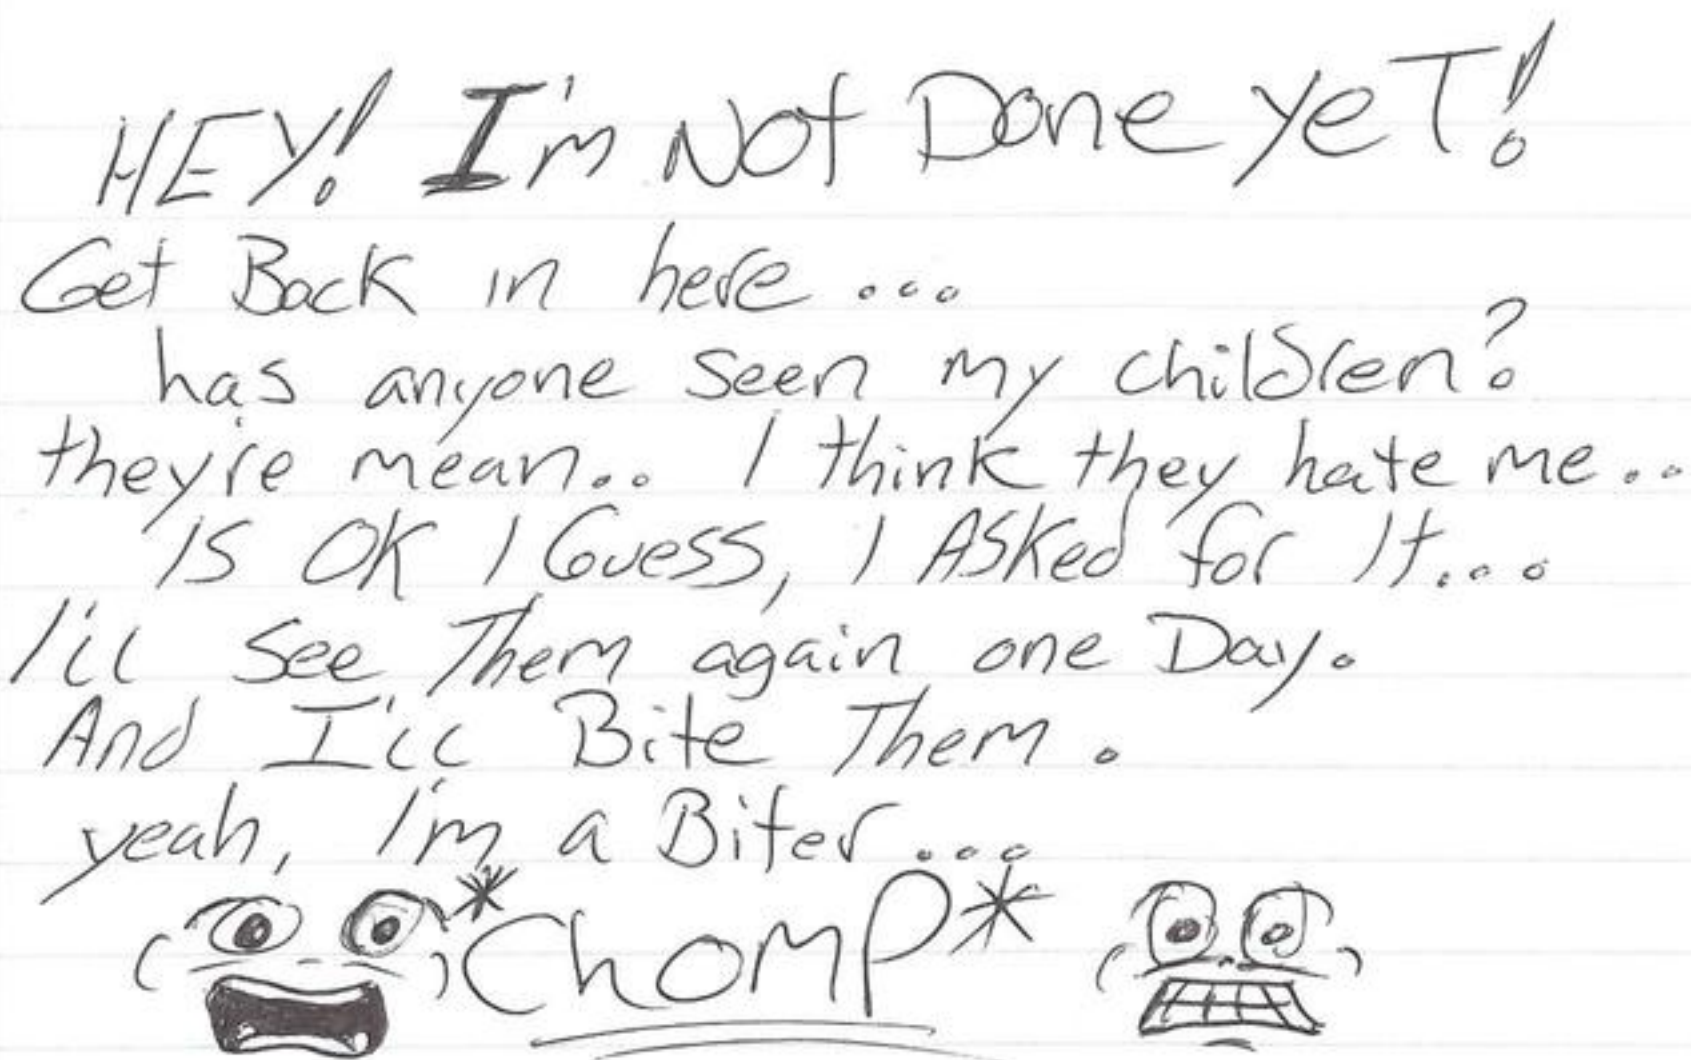 HEY! I'm Not Done yeT!
Get Back in here...
has anyone seen my children?
they're mean.. I think they hate me..
IS OK I Guess, I ASKed for It...
I'll See Them again one Day.
And I'll Bite Them.
yeah, I'm a Biter...
*ChomP*